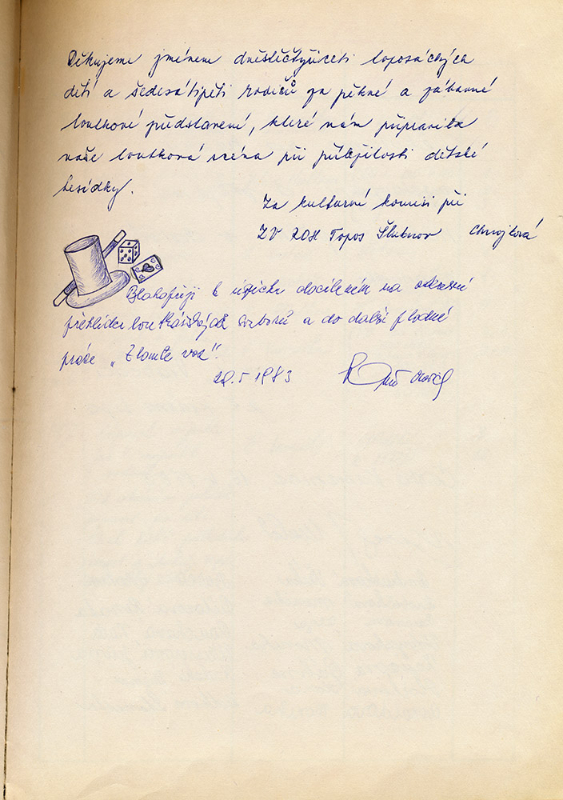 Děkujeme jménem dvěstěčtyřiceti toposáckých
dětí a šedesátipěti rodičů za pěkné a zábavné
loutkové představení, které nám připravila
vaše loutková scéna při příležitosti dětské
besídky.
Za kulturní komisi při
ZV ROH Topos Šluknov
Blahopřeji k úspěchu docíleném na okresní
přehlídce loutkářských souborů a do další plodné
práce „Zlomte vaz".
20.5 1983